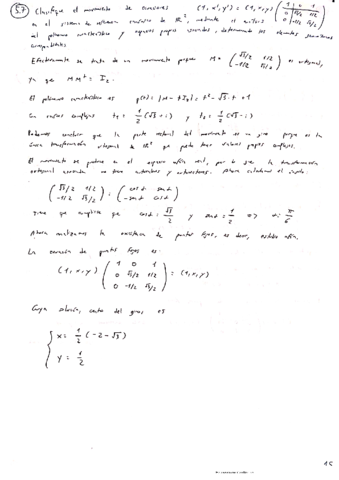 5.7) Clasifique el movimiento de ecuaciones (1, x', y') = (1, x, y) ( 1 0 1 / 0 √3/2 1/2 / 0 -1/2 √3/2 )
en el sistema de referencia canónico de ℝ², mediante el
el polinomio característico y espacios propios asociados, determinando los elementos geométricos
correspondientes
Efectivamente se trata de un movimiento porque M = ( √3/2 1/2 / -1/2 √3/2 ) es ortogonal,
ya que M Mᵗ = I₂.
El polinomio característico es p(t) = |M - tI₂| = t² - √3 t + 1
Con raíces complejas t₁ = 1/2 (√3 + i) y t₂ = 1/2 (√3 - i)
Podemos concluir que la parte vectorial del movimiento es un giro porque es la
única transformación ortogonal de ℝ² que puede tener valores propios complejos.
El movimiento se produce en el espacio afín real, por lo que la transformación
ortogonal asociada no tiene autovalores y autovectores. Ahora calculamos el ángulo.
( √3/2 1/2 / -1/2 √3/2 ) = ( cos α sen α / -sen α cos α )
tiene que cumplirse que cos α = √3/2 y sen α = 1/2 => α = π/6
Ahora analizamos la existencia de puntos fijos, es decir,
La ecuación de puntos fijos es:
(1, x, y) ( 1 0 1 / 0 √3/2 1/2 / 0 -1/2 √3/2 ) = (1, x, y)
Cuya solución, centro del giro, es
{ x = 1/2 (-2 - √3)
y = 1/2